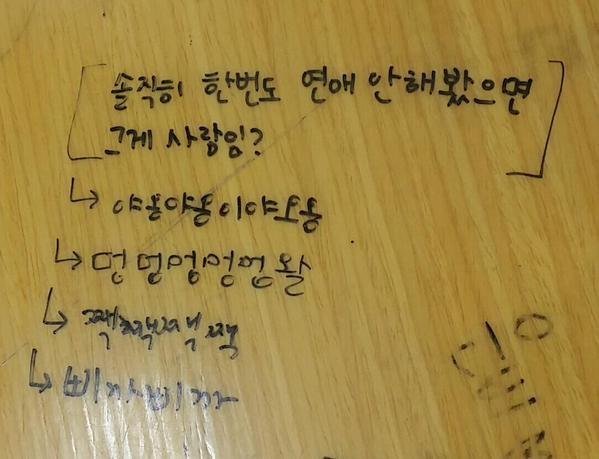 솔직히 한번도 연애 안해봤으면
그게 사람임?
↳ 야옹야옹이야오옹
↳ 멍멍멍멍멍왈
↳ 짹짹짹짹
↳ 삐까삐까